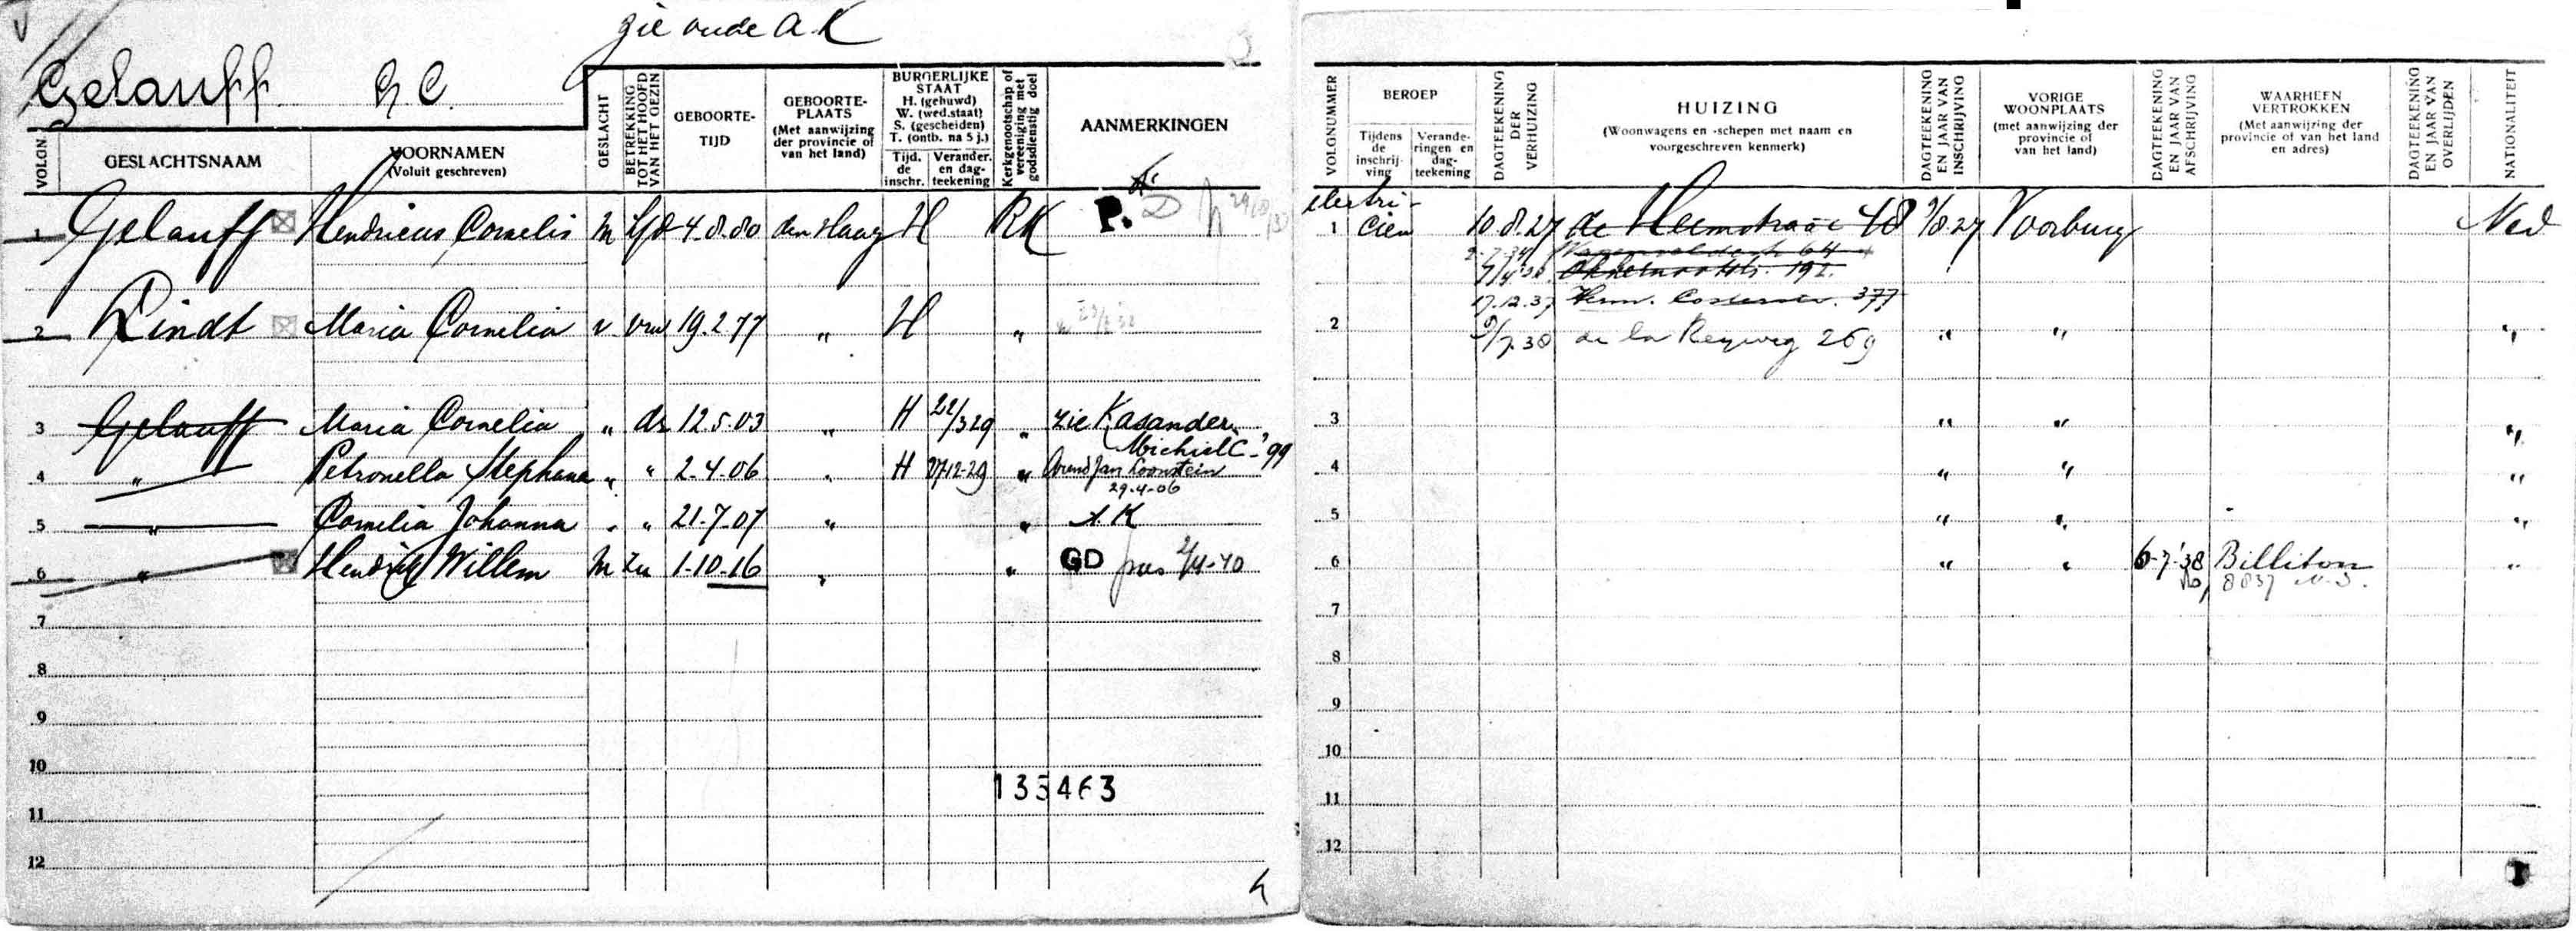 zie oude A.K
Gelauff H C.
VOLGN. GESLACHTSNAAM VOORNAMEN (Voluit geschreven) GESLACHT BETREKKING TOT HET HOOFD VAN HET GEZIN GEBOORTE-TIJD GEBOORTE-PLAATS (Met aanwijzing der provincie of van het land) BURGERLIJKE STAAT H. (gehuwd) W. (wed.staat) S. (gescheiden) T. (ontb. na 5 j.) Tijd. de inschr. Verander. en dag-teekening Kerkgenootschap of vereeniging met godsdienstig doel AANMERKINGEN
1 Gelauff Hendricus Cornelis M Hfd 4.8.80 den Haag H RK P. D
2 Lindt Maria Cornelia v vrw 19.2.77 " H "
3 Gelauff Maria Cornelia " dr 12.5.03 " H 22/3 29 " zie Kasander
Michiel C. '99
4 " Petronella Stephana " " 2-4-06 " H 27-12-29 " Arend Jan Loonstein
29-4-06
5 " Cornelia Johanna " " 21-7-07 " " A K
6 " Hendrik Willem M zn 1-10-16 " " GD pas 2/4-40
7
8
9
10
135463
11
12
VOLGNUMMER BEROEP Tijdens de inschrij-ving Verande-ringen en dag-teekening DAGTEEKENING DER VERHUIZING HUIZING (Woonwagens en -schepen met naam en voorgeschreven kenmerk) DAGTEEKENING EN JAAR VAN INSCHRIJVING VORIGE WOONPLAATS (met aanwijzing der provincie of van het land) DAGTEEKENING EN JAAR VAN AFSCHRIJVING WAARHEEN VERTROKKEN (Met aanwijzing der provincie of van het land en adres) DAGTEEKENING EN JAAR VAN OVERLIJDEN NATIONALITEIT
electri-
1 cien 10.8.27 de Heemstraat 48 8.27 Voorburg Ned
64
192.
17.12.37 Herm. Costerstr. 377
2 9/7.38 de la Reyweg 269 " " "
3 " " "
4 " " "
5 " " "
6 " " 6-7-'38 Billiton "
8037 N.I.
7
8
9
10
11
12